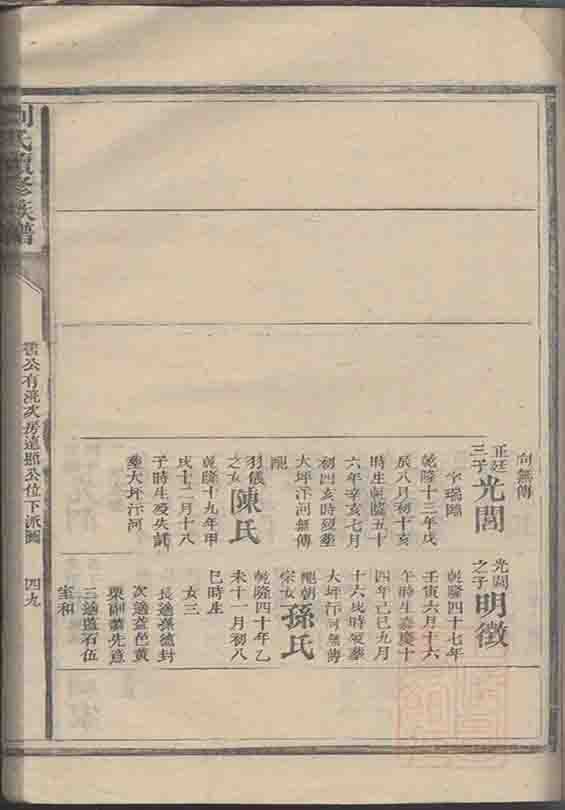 劉氏續修族譜
公有洸次房遠照公位下派圖
四九
向無傳
正廷三子
光閭
字瑞臨
乾隆十三年戊
辰八月初十亥
時生乾隆五十
六年辛亥七月
初四亥時歿葬
大坪汗河無傳
配
羽儀之女
陳氏
乾隆十九年甲
戌十二月十八
子時生歿失記
葬大坪汗河
光閭之子
明徵
乾隆四十七年
壬寅六月十六
午時生嘉慶十
四年己巳九月
十六戌時歿葬
大坪汗河無傳
配朝宗女
孫氏
乾隆四十年乙
未十一月初八
巳時生
女三
長適孫德封
次適益邑黃
榮副蕭先意
三適藍石伍
室和